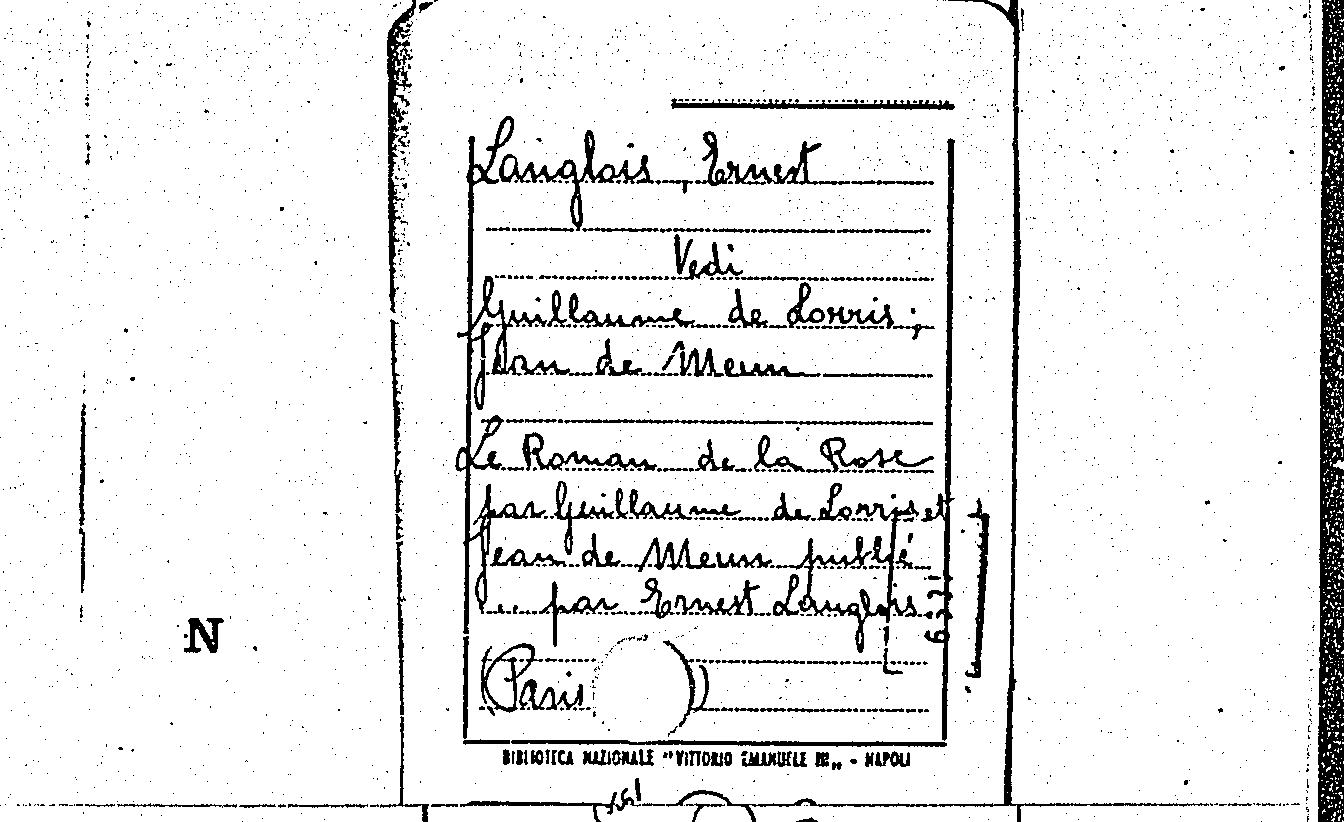 Langlois, Ernest
Vedi
Guillaume de Lorris;
Jean de Meun
Le Roman de la Rose
par Guillaume de Lorris et
Jean de Meun publié
... par Ernest Langlois
(Paris )
N
BIBLIOTECA NAZIONALE "VITTORIO EMANUELE III„ - NAPOLI